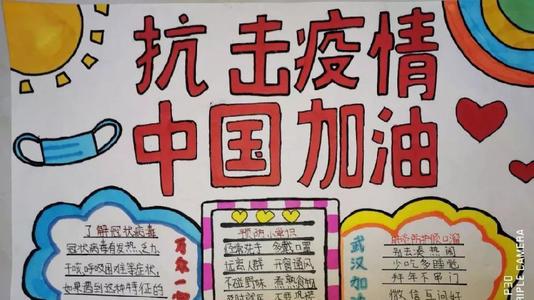 抗击疫情
中国加油
了解冠状病毒
冠状病毒有发热、乏力
干咳、呼吸困难等症状,
如果遇到这种特征的
万众一
预防小常识
勤洗手 多戴口罩
远离人群 开窗通风
不碰野味 煮熟食物
武汉加油
别去凑热闹
少吃多睡觉
拜年不串门
微信来问候
TRIPLE CAMERA